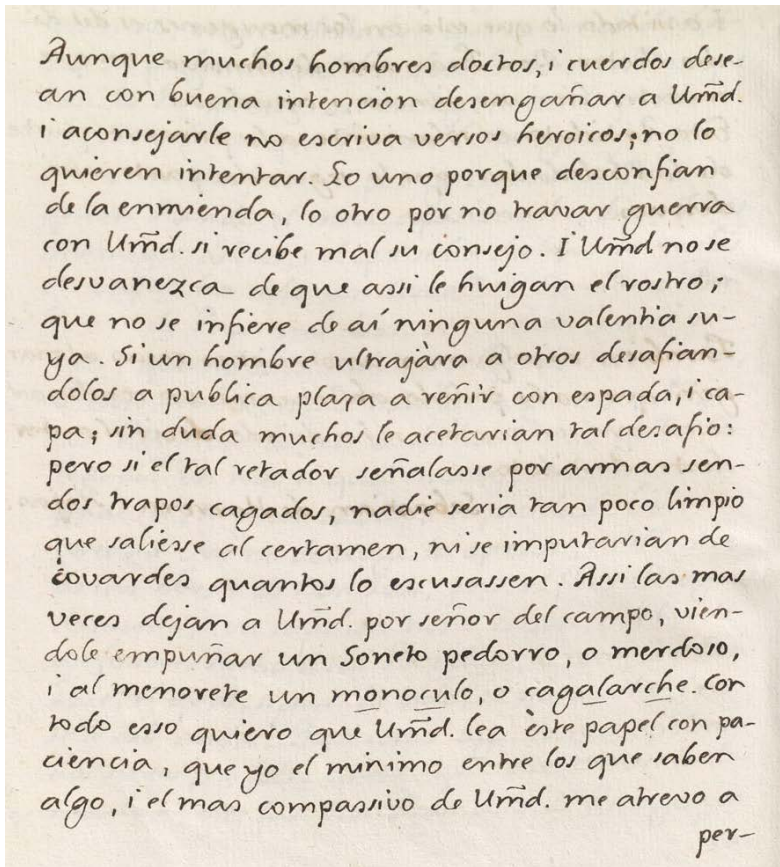 Aunque muchos hombres doctos, i cuerdos dese-
an con buena intencion desengañar a Um̃d.
i aconsejarle no escriva versos heroicos; no lo
quieren intentar. Lo uno porque desconfian
de la enmienda, lo otro por no travar guerra
con Um̃d. si recibe mal su consejo. I Um̃d no se
desvanezca de que assi le huigan el rostro;
que no se infiere de aí ninguna valentia su-
ya. Si un hombre ultrajàra a otros desafian-
dolos a publica plaza a reñir con espada, i ca-
pa; sin duda muchos le acetarian tal desafio:
pero si el tal retador señalasse por armas sen-
dos trapos cagados, nadie seria tan poco limpio
que saliesse al certamen, ni se imputarian de
covardes quantos lo escusassen. Assi las mas
veces dejan a Um̃d. por señor del campo, vien-
dole empuñar un Soneto pedorro, o merdoso,
i al menorete un monoculo, o cagalarche. Con
todo esso quiero que Um̃d. lea èste papel con pa-
ciencia, que yo el minimo entre los que saben
algo, i el mas compassivo de Um̃d. me atrevo a
per-